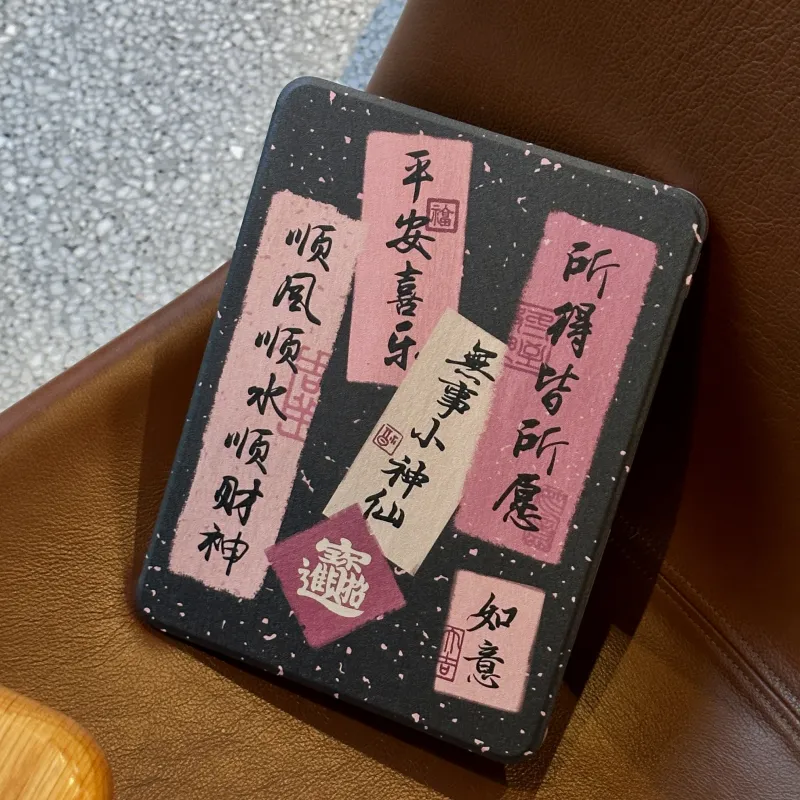 顺风顺水顺财神
平安喜乐
福
無事小神仙
所得皆所愿
招財進寶
如意
大吉